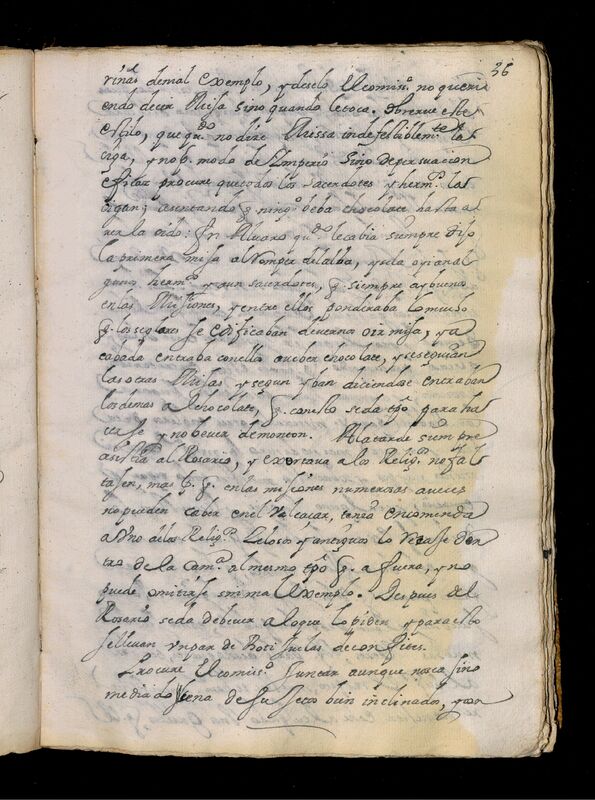 36
rinas de mal exemplo, y deselo el comiss.º no queri
endo decir Missa sino quando le toca. Observe este
estilo, que q.do no dixe Missa indefectiblem.te la
oiga, y no p.r modo de Imperio sino de persuacion
eficaz procure que todos los sacerdotes y herm.os la
oigan; asentando q. ning.º beba chocolate hasta a
verla oido: fr. Alvaro q.do le cabia siempre dijo
la primera missa al romper del alba, y sela oyan al
gunos herm.os y aun sacerdotes, q. siempre ay buenos
en las Missiones, y entre ellos ponderaba lo mucho
q. los seglares se edificaban de vernos oir misa, y a
cabada entraba con ellos a veber chocolate, y se seguian
las otras Missas y segun yban diciendose entraban
los demas al chocolate, q. con esto se da tpo para ha
cerse y no bever de monton. A la tarde siempre
asistia al Rosario, y exortava a los Relig.os no fal
tasen, mas p.r q. en las missiones numerosas a veces
no pueden caber en el Alcazar, tenia encomenda
a uno de los Relig.os Zelosos y antiguos lo rezase den
tro de la Cam.a al mesmo tpo q. a fuera, y no
puede omitirse sin mal exemplo. Despues del
Rosario se da de bever a los que lo piden y para esto
se llevan un par de Botijuelas de confites.
Procure el comiss.º juntar aunque no sea sino
media docena de sujetos bien inclinados, y con